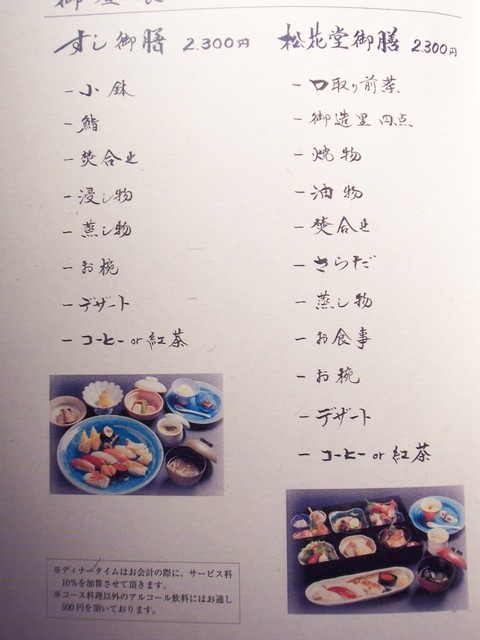 すし御膳 2.300円
一小鉢
一鮨
一焚合せ
一浸し物
一蒸し物
一お椀
一デザート
一コーヒー or 紅茶
松花堂御膳 2.300円
一口取り前菜
一御造里 四点
一焼物
一油物
一焚合せ
一さらだ
一蒸し物
一お食事
一お椀
一デザート
一コーヒー or 紅茶
※ディナータイムはお会計の際に、サービス料
10%を加算させて頂きます。
※コース料理以外のアルコール飲料にはお通し
500円を頂いております。